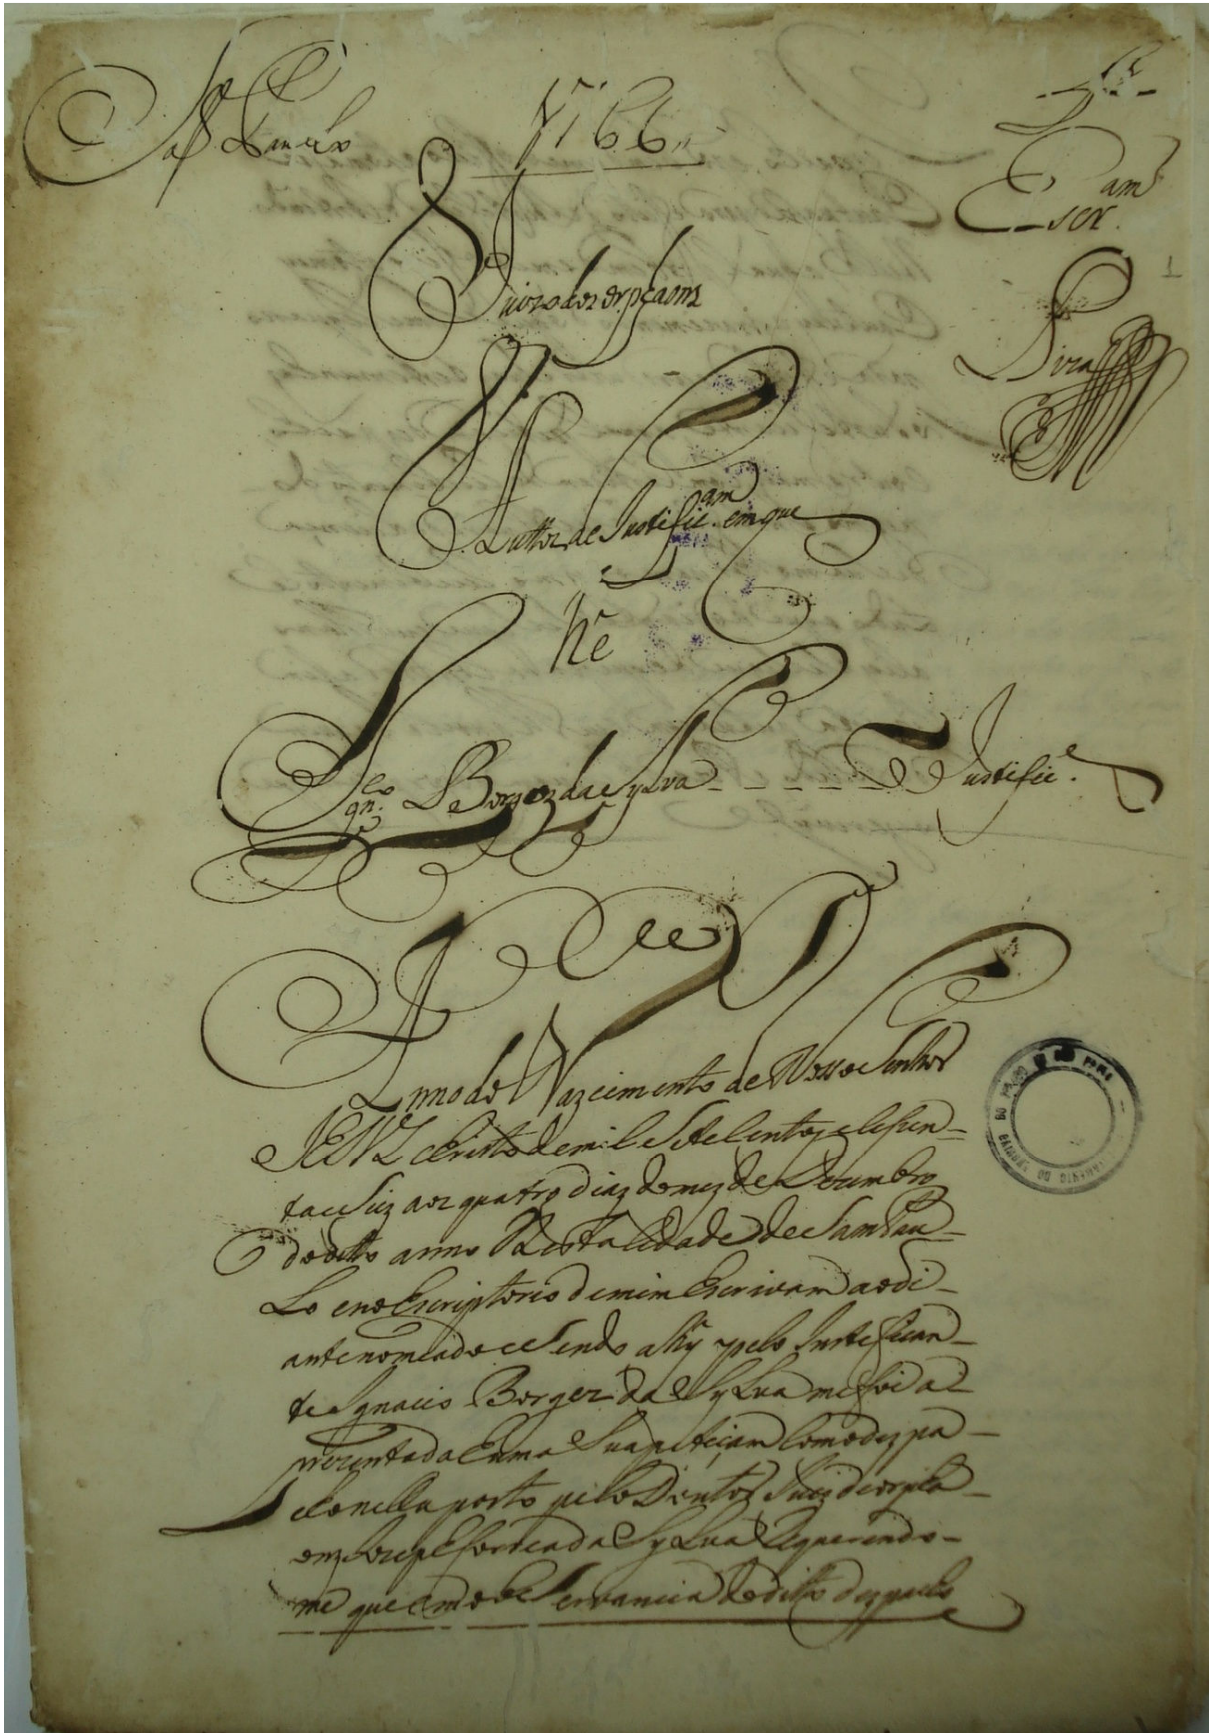 Sam Paulo
1766
Escr.am
1
Juizo dos orphaons
Auttos de Justific.am em que
he
Ign.co Borges da Sylva Justific.e
Anno do Nazcimento de Nosso Senhor
JESVZ Christo de mil e Sete Centos e Cesen=
ta e Seiz aoz quatro diaz do mez de Dezembro
do ditto anno Nesta Cidade de Sam Pau=
Lo eno Escriptorio de mim Escrivam aodi=
ante nomeado e Sendo ahy pelo Justefican=
te Ignacio Borges da Sylva me foi a=
prezentada huma Sua petiçam Com o dezpa=
cho nella posto pelo Doutor Juiz de orpha=
onz Joze da Sylva Requerendo=
me que em obcervancia do ditto dezpacho